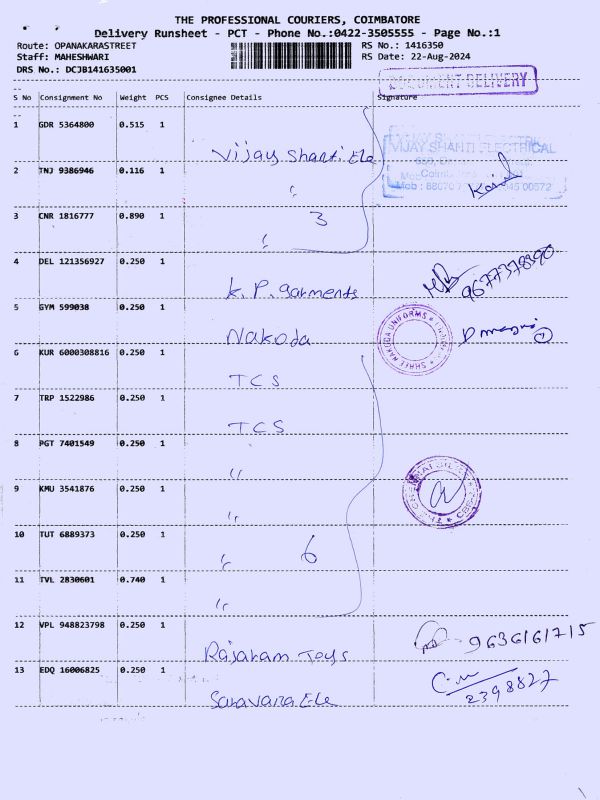 THE PROFESSIONAL COURIERS, COIMBATORE
Delivery Runsheet - PCT - Phone No.:0422-3505555 - Page No.:1
Route: OPANAKARASTREET RS No.: 1416350
Staff: MAHESHWARI RS Date: 22-Aug-2024
DRS No.: DCJB141635001
DOCUMENT DELIVERY
S No Consignment No Weight PCS Consignee Details Signature
1 GDR 5364800 0.515 1
Vijay Shanti Ele
VIJAY SHANTI ELECTRICAL
2 TNJ 9386946 0.116 1
"
3 CNR 1816777 0.890 1
3
"
4 DEL 121356927 0.250 1
K. P. garments
9677378390
5 GYM 599038 0.250 1
Nakoda
SHREE NAKODA UNIFORMS
6 KUR 6000308816 0.250 1
TCS
7 TRP 1522986 0.250 1
TCS
8 PGT 7401549 0.250 1
"
9 KMU 3541876 0.250 1
"
10 TUT 6889373 0.250 1
" 6
11 TVL 2830601 0.740 1
"
12 VPL 948823798 0.250 1
Rajaram Toys
9636161715
13 EDQ 16006825 0.250 1
Saravana Ele
2398827